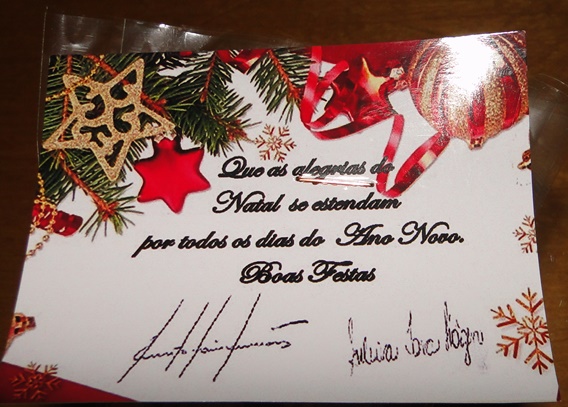 Que as alegrias do
Natal se estendam
por todos os dias do Ano Novo.
Boas Festas